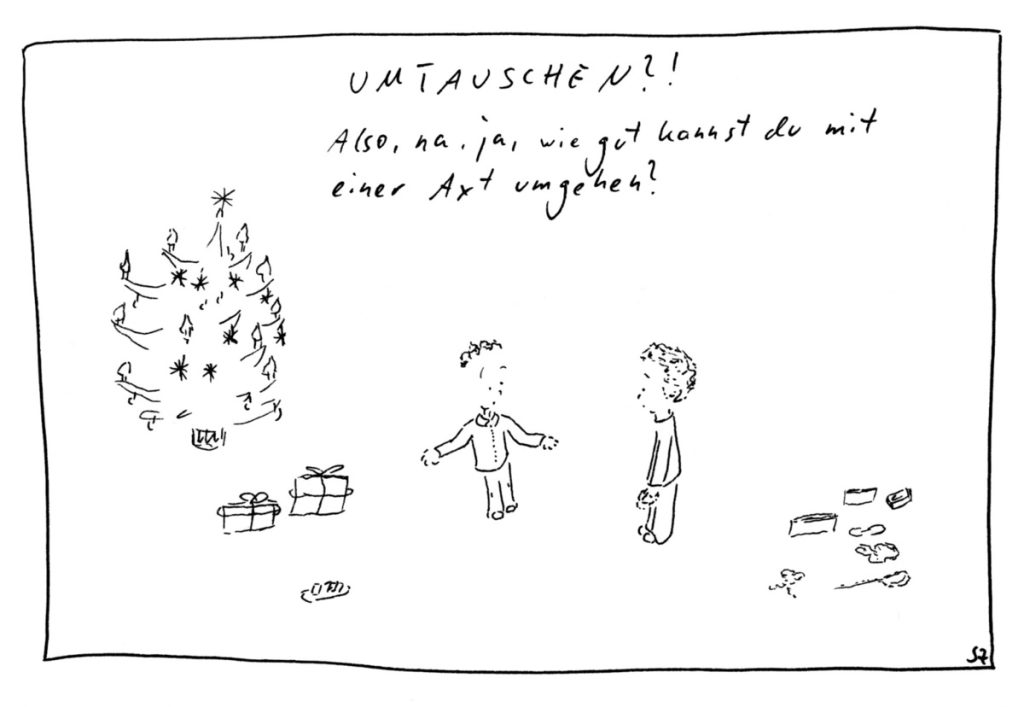 UMTAUSCHEN?!
Also, na.ja, wie gut kannst du mit
einer Axt umgehen?
SZ